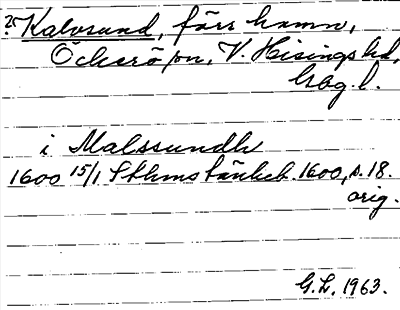 ? Kalvsund, förr hamn,
Öckerö sn, V. Hisings hd,
Gbg. l.
i Malssundh
1600 15/1 Sthms tänkeb. 1600, s. 18.
orig.
G.L. 1963.